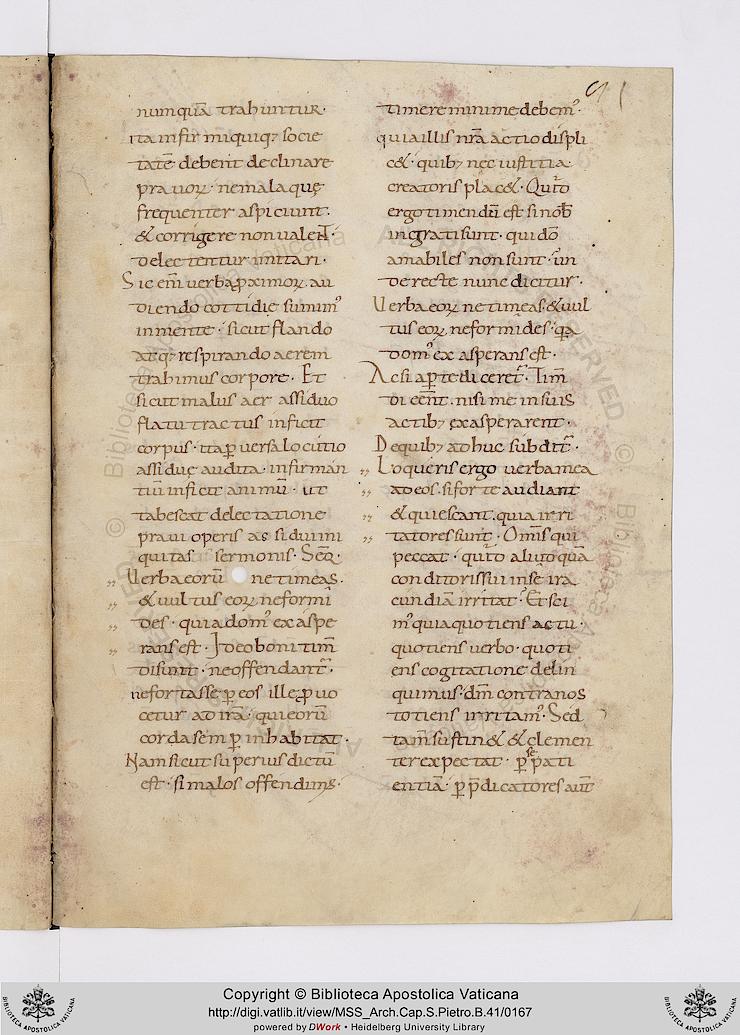 91
numquā trahuntur.
ita infirmi quiq; socie
tatē debent declinare
prauoꝝ. ne mala quę
frequenter aspiciunt.
& corrigere non ualent.
delectentur imitari.
Sic eni᷒ uerba ꝓximoꝝ. au
diendo cottidie sumim᷒
in mente. sicut flando
atq; respirando aerem
trahimus corpore. Et
sicut malus aer assiduo
flatu tractus inficit
corpus. ita ꝑuersa locutio
assidue audita. infirman
tiū inficit animū. ut
tabescat delectatione
praui operis assidui ini
quitas sermonis. Seq̄.
Uerba eorū ne timeas.
& uultus eoꝝ ne formi
des. quia dom᷒ exaspe
rans est. Ideo boni tim̄
di sunt. ne offendant᷑.
ne fortasse ꝑ eos ille ꝓuo
cetur ad irā. qui eorū
corda semꝑ inhabitat.
Nam sicut superius dictū
est. si malos offendim᷒.
timere minime debem᷒.
quia illis nr̄a actio displi
c&. quib; nec iustitia
creatoris plac&. Quid
ergo timendū est si nob̄
ingrati sunt. qui dō
amabiles non sunt. Un
de recte nunc dicitur.
Uerba eoꝝ ne timeas. & uul
tus eoꝝ ne formides. q̄a
dom᷒ exasperans est.
Ac si aꝑte diceret᷑. Tim̄
di eēnt. nisi me in suis
actib; exasperarent.
De quib; adhuc subdit᷑.
Loqueris ergo uerba mea
ad eos. si forte audiant
& quiescant. quia irri
tatores sunt. Om̄s qui
peccat. quid aliud quā
conditoris sui in sē ira
cundiā irritat? Et sci
m᷒ quia quotiens actu.
quotiens uerbo. quoti
ens cogitatione delin
quimus. dm̄ contra nos
totiens irritam᷒. Sed
tam̄ sustin& & clemen
ter expectat. ꝑ se pati
entiā. ꝑ p̄dicatores aut̄
Copyright © Biblioteca Apostolica Vaticana
http://digi.vatlib.it/view/MSS_Arch.Cap.S.Pietro.B.41/0167
powered by DWork • Heidelberg University Library